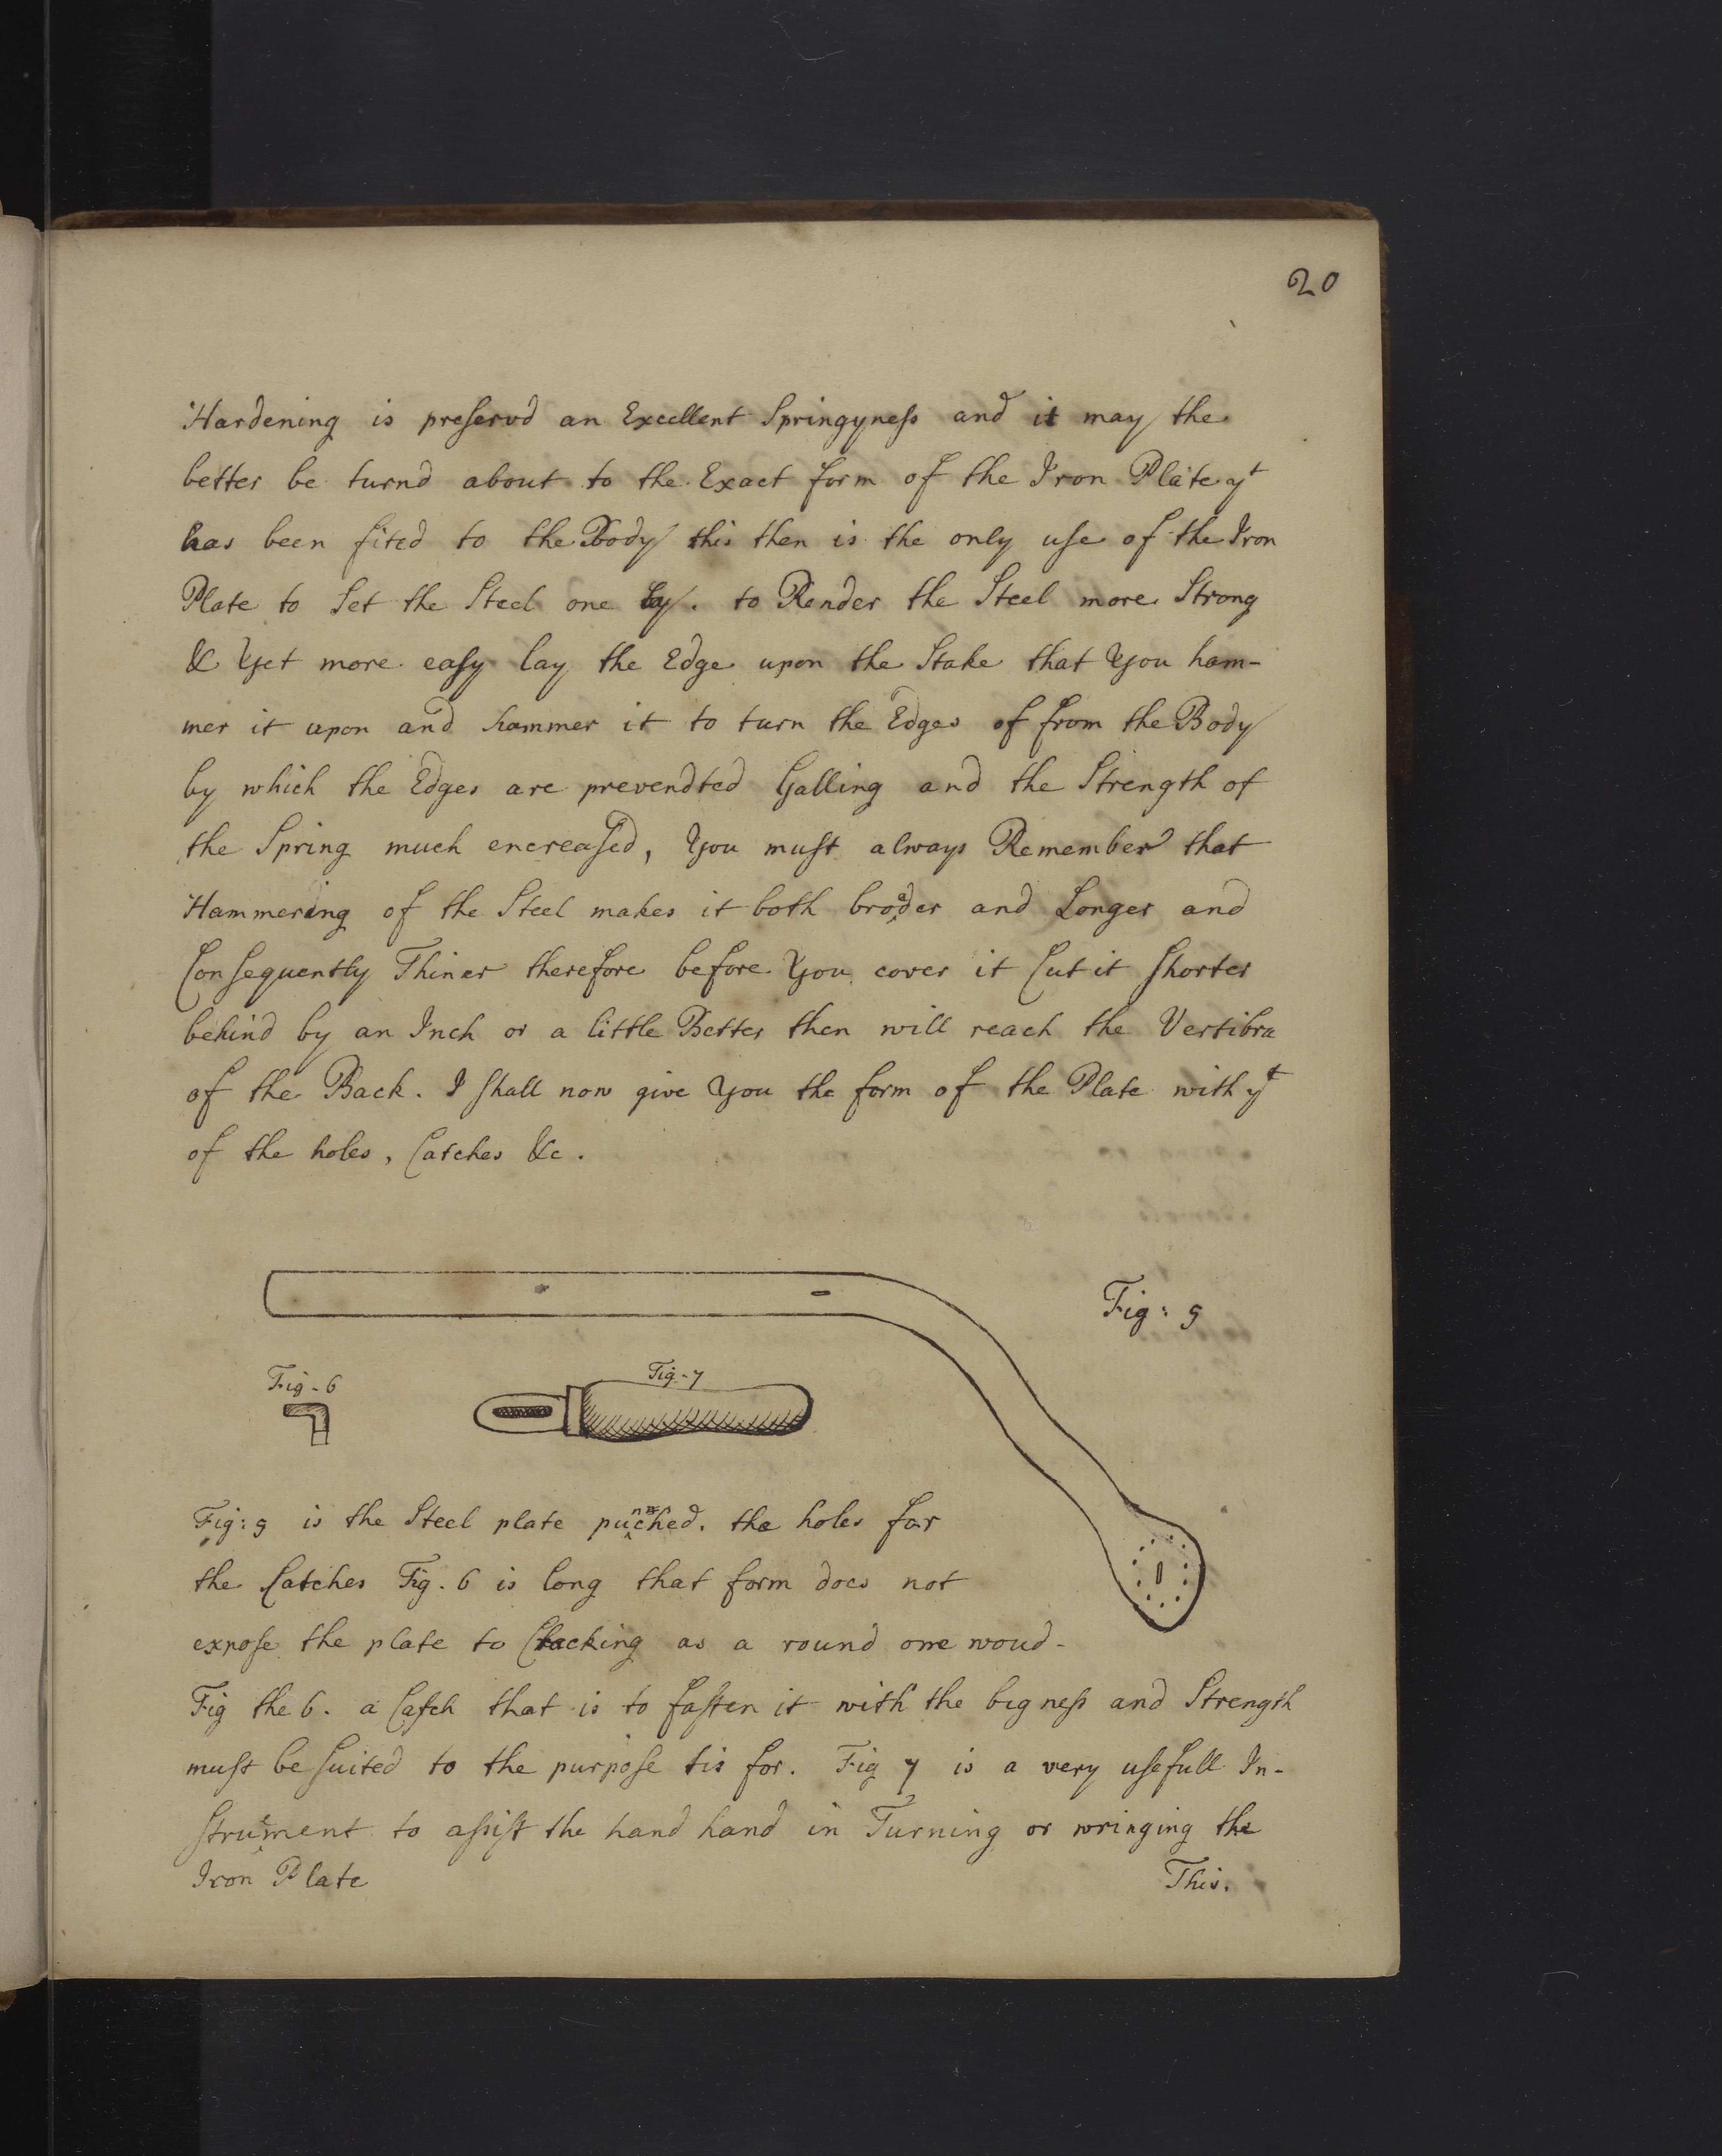 20
Hardening is preſervd an Excellent Springyneſs and it may the
better be turnd about to the Exact form of the Iron Plate yt
has been fited to the Body this then is the only uſe of the Iron
Plate to Set the Steel one by. to Render the Steel more Strong
& Yet more eaſy lay the Edge upon the Stake that You ham-
mer it upon and hammer it to turn the Edges of from the Body
by which the Edges are prevendted Galling and the Strength of
the Spring much encreaſed, You muſt always Remember that
Hammering of the Steel makes it both broader and Longer and
Conſequently Thiner therefore before You cover it Cut it ſhorter
behind by an Inch or a little Better then will reach the Vertibra
of the Back. I ſhall now give You the form of the Plate with yt
of the holes, Catches &c.
Fig: 9
Fig - 6
Fig - 7
Fig: 9 is the Steel plate punched. the holes for
the Catches Fig. 6 is long that form does not
expoſe the plate to Cracking as a round one woud-
Fig the 6. a Catch that is to faſten it with the bigneſs and Strength
muſt be ſuited to the purpoſe tis for. Fig 7 is a very uſefull In-
ſtrument to aſsiſt the hand hand in Turning or wringing the
Iron Plate
This.